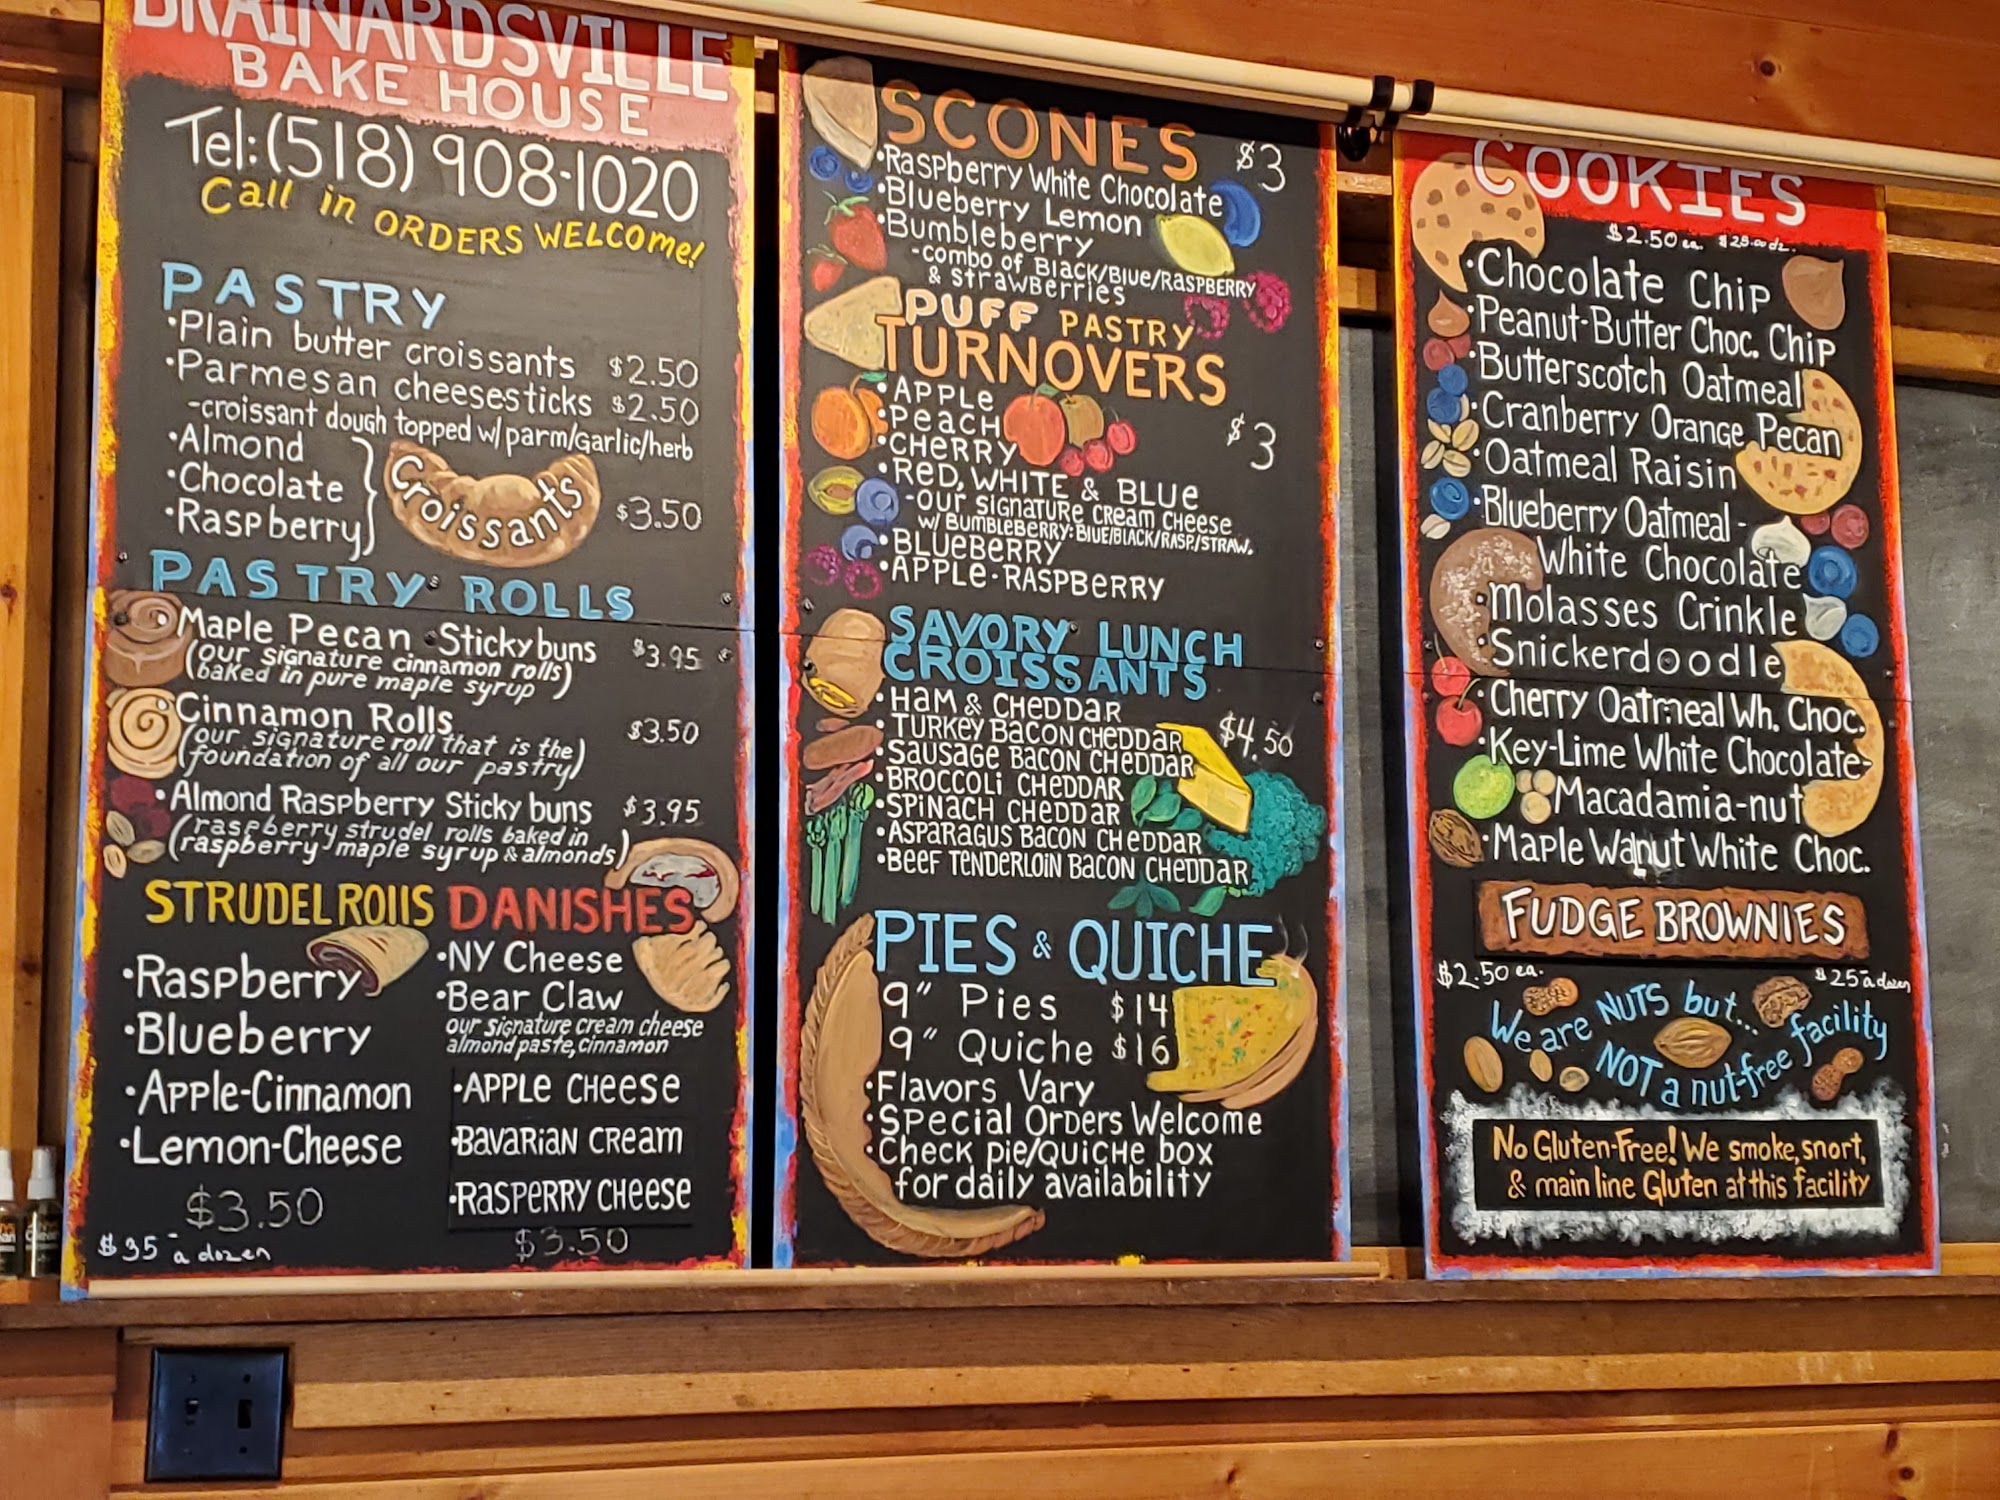 BRAINARDSVILLE
BAKE HOUSE
Tel: (518) 908-1020
Call in ORDERS WELCOME!
PASTRY
•Plain butter croissants $2.50
•Parmesan cheesesticks $2.50
-croissant dough topped w/ parm/garlic/herb
•Almond
•Chocolate
•Raspberry
Croissants
$3.50
PASTRY ROLLS
•Maple Pecan Stickybuns $3.95
(our signature cinnamon rolls)
(baked in pure maple syrup)
•Cinnamon Rolls $3.50
(our signature roll that is the)
(foundation of all our pastry)
•Almond Raspberry Sticky buns $3.95
(raspberry strudel rolls baked in
(raspberry maple syrup & almonds)
STRUDEL ROLLS
•Raspberry
•Blueberry
•Apple-Cinnamon
•Lemon-Cheese
$3.50
$35- a dozen
DANISHES
•NY Cheese
•Bear Claw
our signature cream cheese
almond paste, cinnamon
•APPLE CHEESE
•BAVARIAN CREAM
•RASPERRY CHEESE
$3.50
SCONES $3
•Raspberry White Chocolate
•Blueberry Lemon
•Bumbleberry
-combo of Black/Blue/RASPBERRY
& strawberries
PUFF PASTRY
TURNOVERS
•APPLE
•Peach
•CHERRY
$3
•Red, WHITE & BLUe
-our signature cream cheese
w/ Bumbleberry: BLUE/BLACK/RASP./STRAW.
•BLUeBeRRY
•APPLe-RASPBeRRY
SAVORY LUNCH
CROISSANTS
•HAM & CHEDDAR
•TURKEY BACON CHEDDAR $4.50
•SAUSAGE BACON CHEDDAR
•BROCCOLI CHEDDAR
•SPINACH CHEDDAR
•ASPARAGUS BACON CHEDDAR
•BEEF TENDERLOIN BACON CHEDDAR
PIES & QUICHE
9" Pies $14
9" Quiche $16
•Flavors Vary
•Special Orders Welcome
•Check pie/Quiche box
for daily availability
COOKIES
$2.50 ea. $25.00 dz.
•Chocolate Chip
•Peanut-Butter Choc. Chip
•Butterscotch Oatmeal
•Cranberry Orange Pecan
•Oatmeal Raisin
•Blueberry Oatmeal -
White Chocolate
•Molasses Crinkle
•Snickerdoodle
•Cherry Oatmeal Wh. Choc.
•Key-Lime White Chocolate-
Macadamia-nut
•Maple Walnut White Choc.
FUDGE BROWNIES
$2.50 ea. $25 a dozen
We are NUTS but...
NOT a nut-free facility
No Gluten-Free! We smoke, snort,
& main line Gluten at this facility